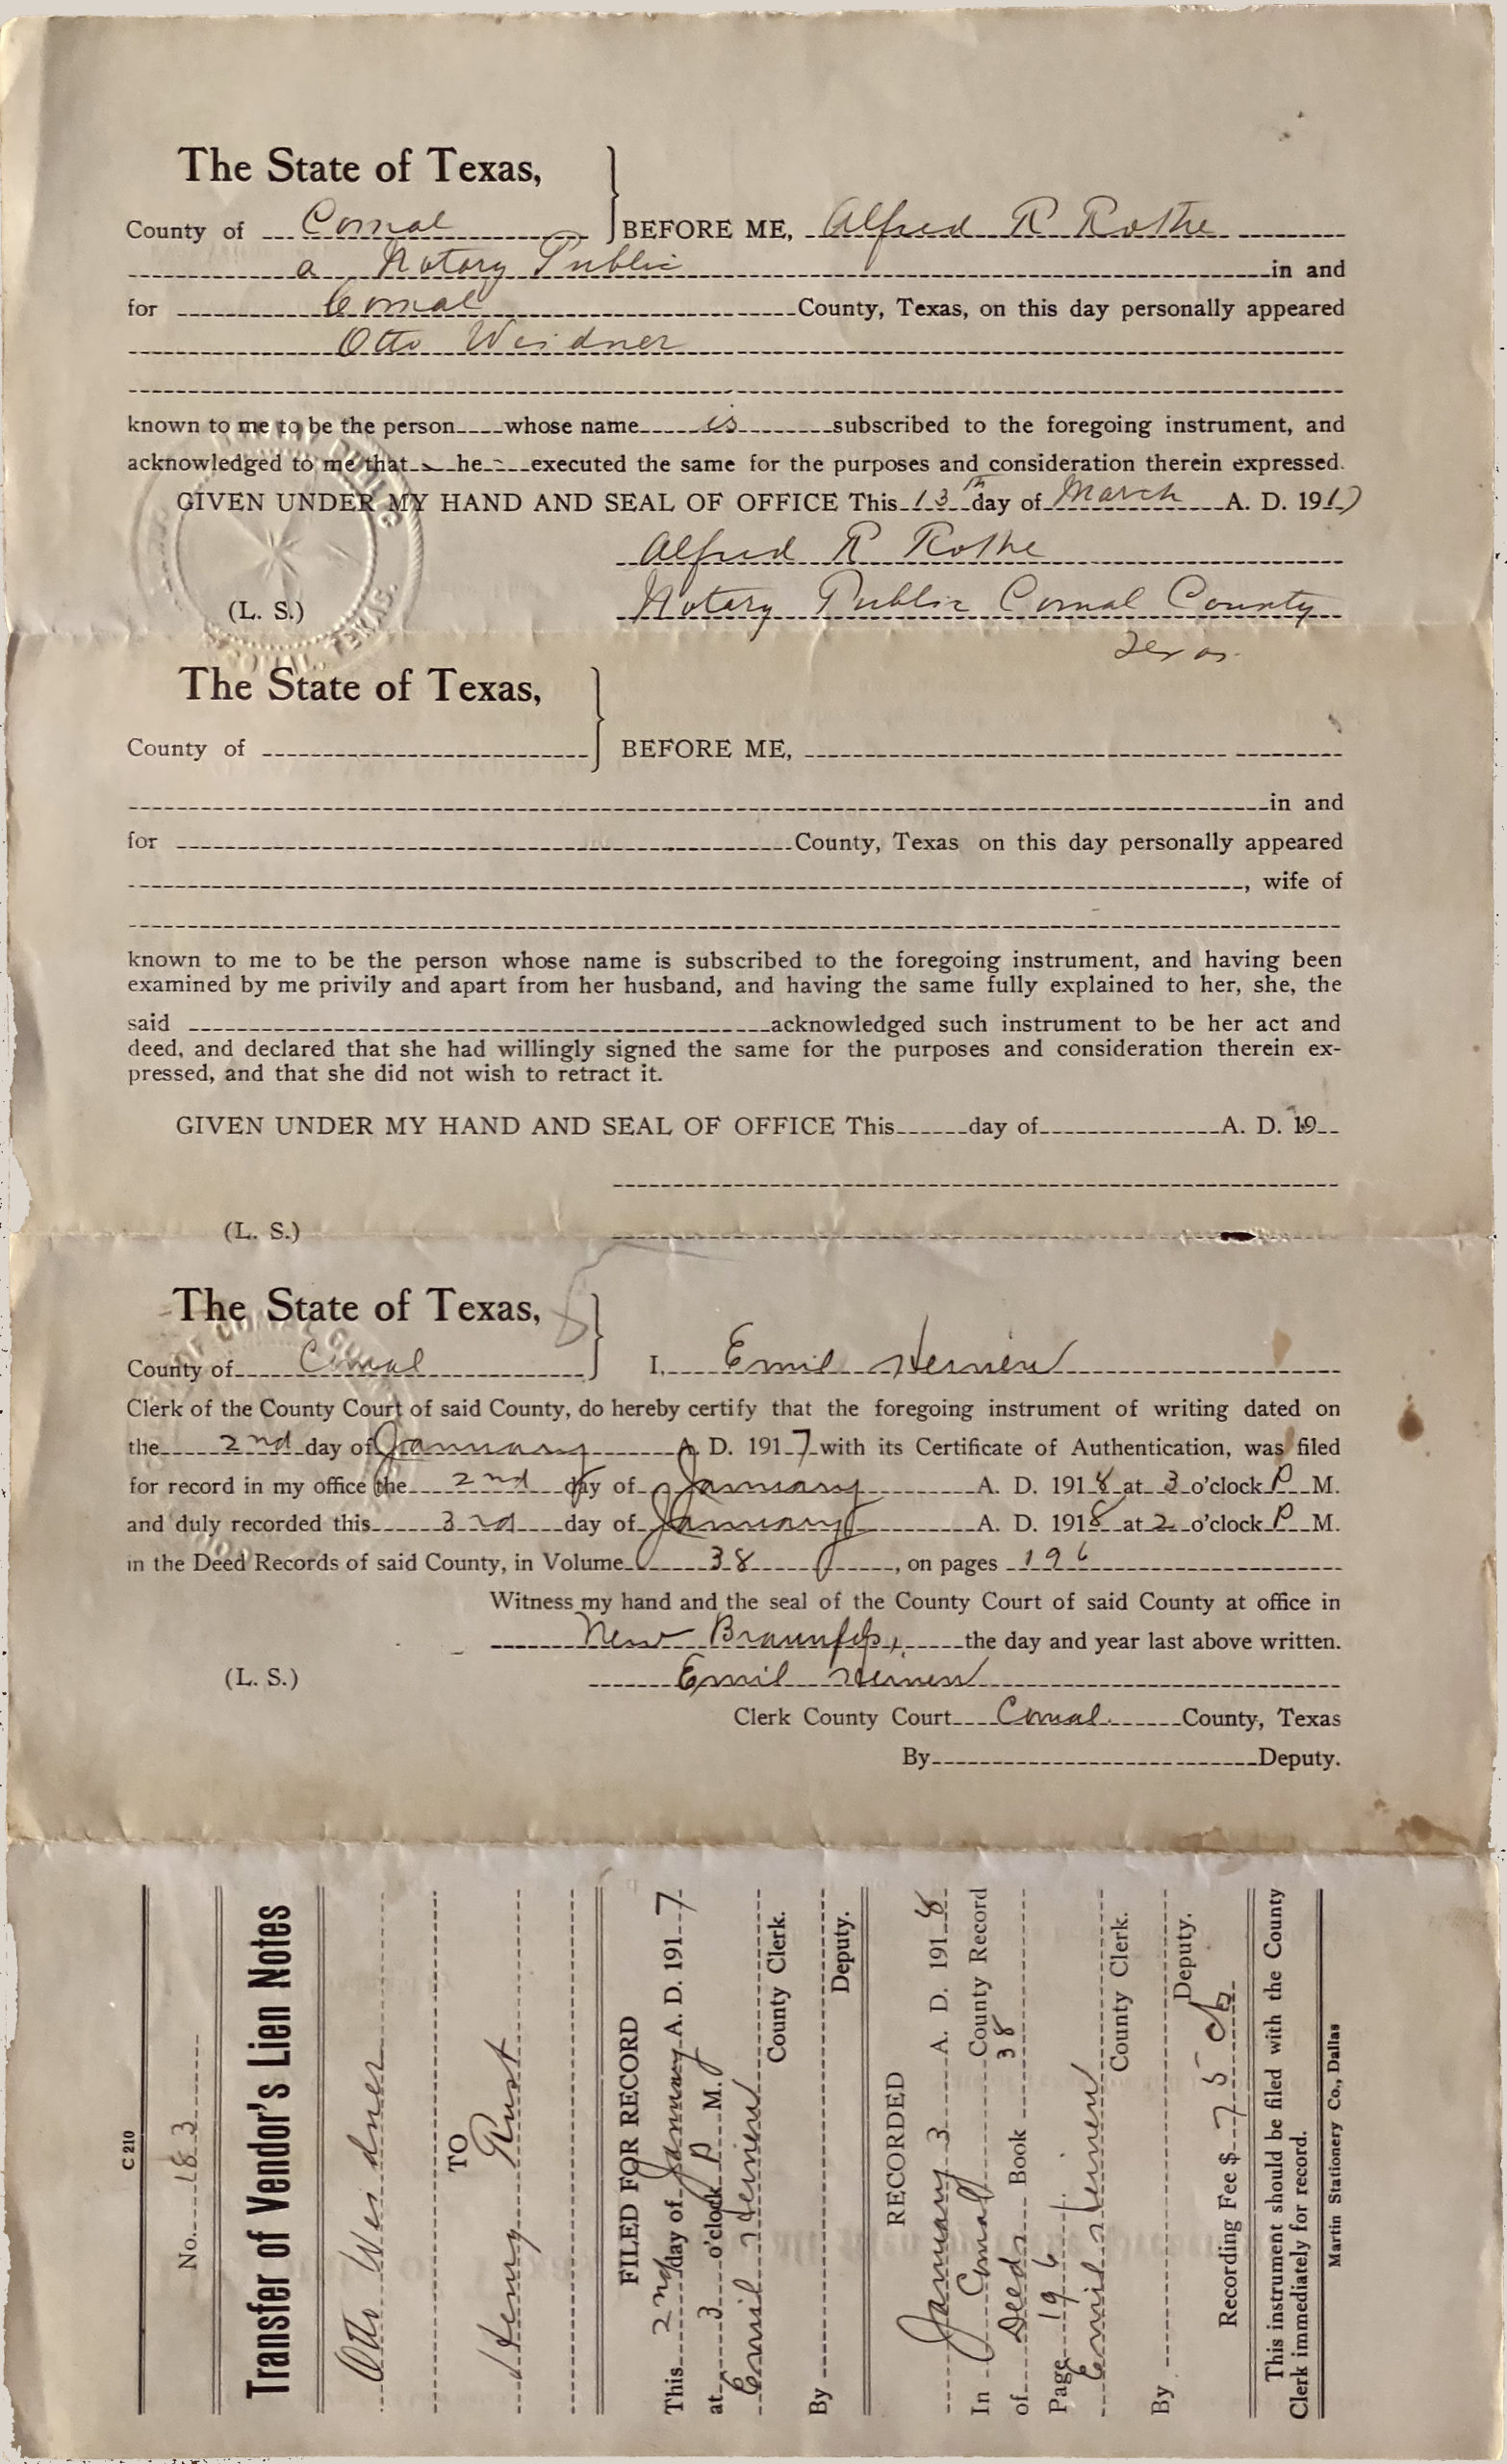 The State of Texas,
County of Comal BEFORE ME, Alfred R Rothe
a Notary Public in and
for Comal County, Texas, on this day personally appeared
Otto Weidner
known to me to be the person whose name is subscribed to the foregoing instrument, and
acknowledged to me that he executed the same for the purposes and consideration therein expressed.
GIVEN UNDER MY HAND AND SEAL OF OFFICE This 13th day of March A. D. 1917
Alfred R Rothe
(L. S.) Notary Public Comal County
Texas
The State of Texas,
County of BEFORE ME,
in and
for County, Texas on this day personally appeared
, wife of
known to me to be the person whose name is subscribed to the foregoing instrument, and having been
examined by me privily and apart from her husband, and having the same fully explained to her, she, the
said acknowledged such instrument to be her act and
deed, and declared that she had willingly signed the same for the purposes and consideration therein ex-
pressed, and that she did not wish to retract it.
GIVEN UNDER MY HAND AND SEAL OF OFFICE This day of A. D. 19
(L. S.)
The State of Texas,
County of Comal I, Emil Heinen
Clerk of the County Court of said County, do hereby certify that the foregoing instrument of writing dated on
the 2nd day of January A. D. 1917 with its Certificate of Authentication, was filed
for record in my office the 2nd day of January A. D. 1918 at 3 o'clock P M.
and duly recorded this 3rd day of January A. D. 1918 at 2 o'clock P M.
in the Deed Records of said County, in Volume 38, on pages 196
Witness my hand and the seal of the County Court of said County at office in
New Braunfels, the day and year last above written.
(L. S.) Emil Heinen
Clerk County Court Comal County, Texas
By Deputy.
C 210
No. 183
Transfer of Vendor's Lien Notes
Otto Weidner
TO
Henry Rust
FILED FOR RECORD
This 2nd day of January A. D. 1917
at 3 o'clock P M.
Emil Heinen
County Clerk.
By
Deputy.
RECORDED
January 3 A. D. 1918
In Comal County Record
of Deeds Book 38
Page 196
Emil Heinen
County Clerk.
By Deputy.
Recording Fee $ 75 cts
This instrument should be filed with the County
Clerk immediately for record.
Martin Stationery Co., Dallas